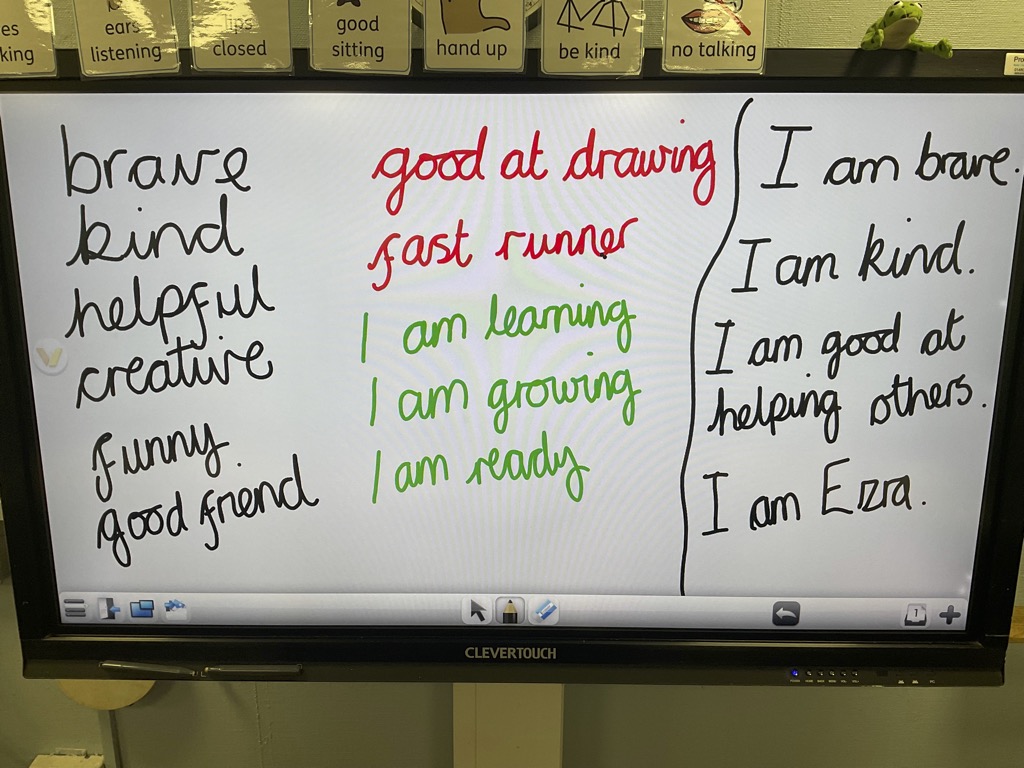 es
king
ears
listening
lips
closed
good
sitting
hand up
be kind
no talking
brave
kind
helpful
creative
funny
good friend
good at drawing
fast runner
I am learning
I am growing
I am ready
I am brave.
I am kind.
I am good at
helping others.
I am Ezra.
1
CLEVERTOUCH